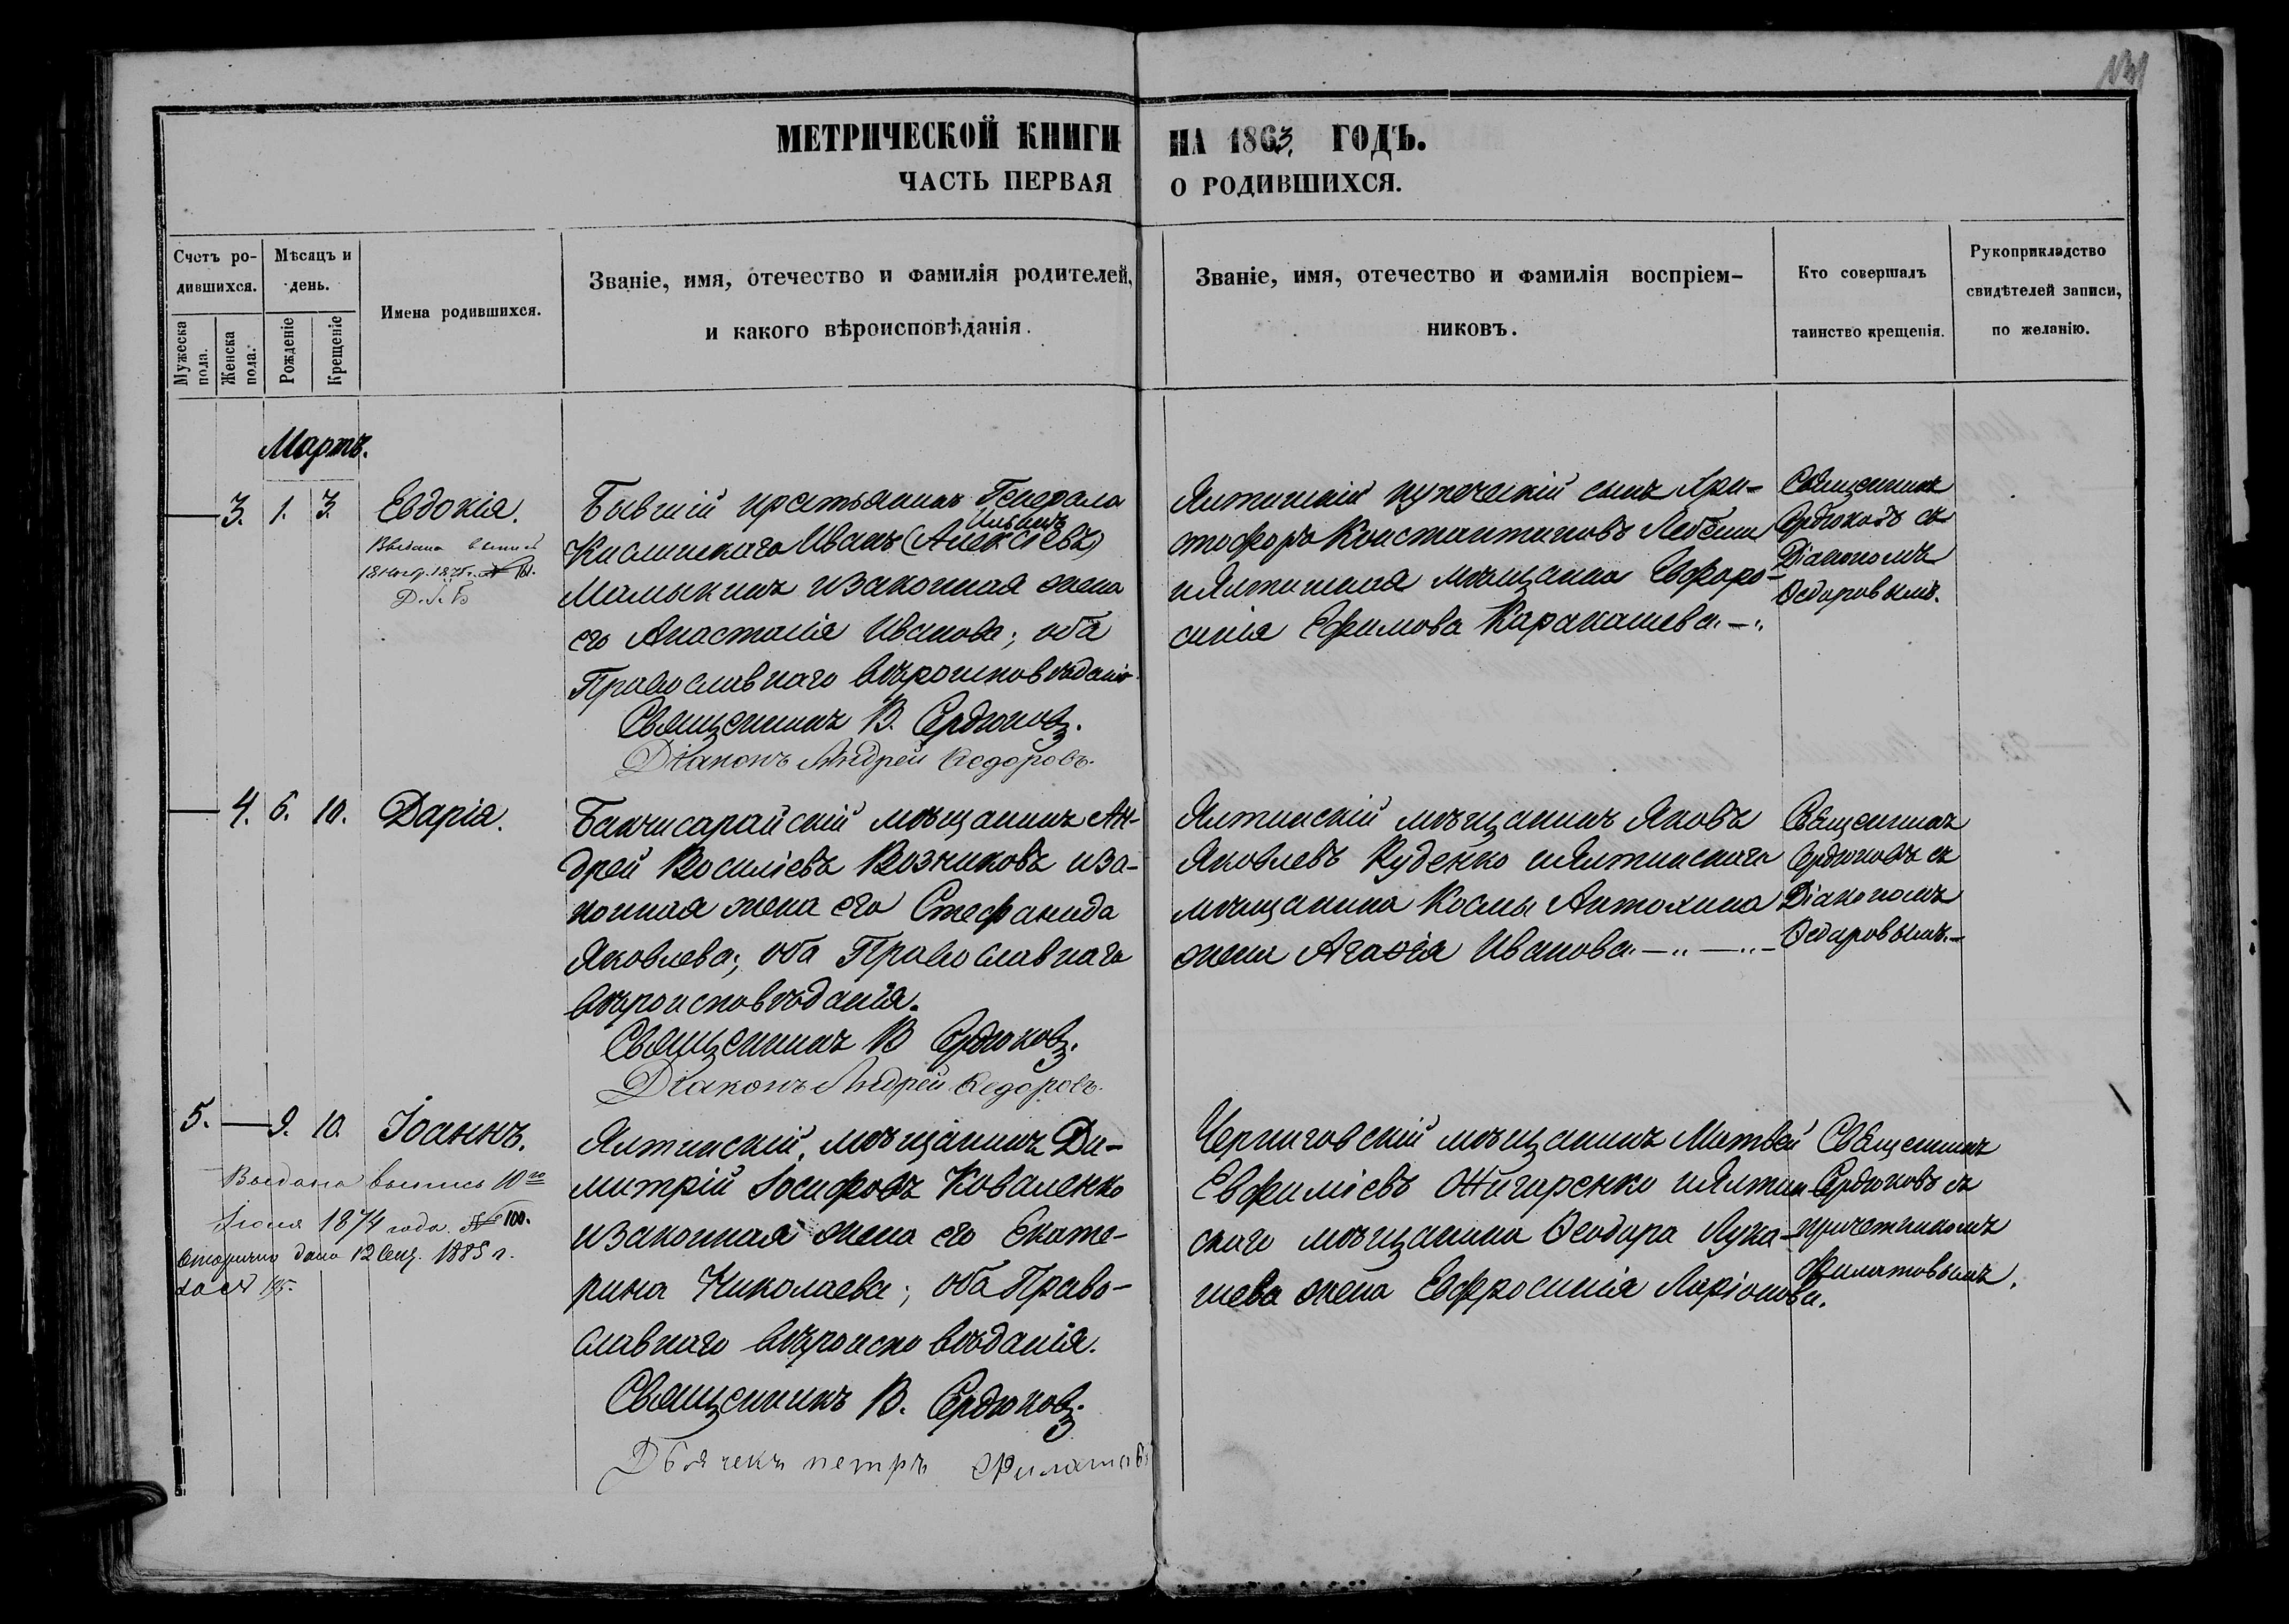 МЕТРИЧЕСКОЙ КНИГИ НА 1863 ГОДЪ.
ЧАСТЬ ПЕРВАЯ О РОДИВШИХСЯ.
Счетъ ро-
дившихся.
Мужеска
пола.
Женска
пола.
Мѣсяцъ и
день.
Рожденіе
Крещеніе
Имена родившихся.
Званіе, имя, отечество и фамилія родителей,
и какого вѣроисповѣданія.
Званіе, имя, отечество и фамилія воспріем-
никовъ.
Кто совершалъ
таинство крещенія.
Рукоприкладство
свидѣтелей записи,
по желанію.
Мартъ.
— 3. 1. 3. Евдокія.
Выдана
Д.
Бывшій крестьянинъ Генерала
Кислинскаго Иванъ (Алексіевъ)
Мамыкинъ и законная жена
его Анастасія Иванова; оба
Православнаго вѣроисповѣданія
Священникъ В. Сердюковъ.
Діаконъ Андрей Ѳедоровъ.
Ялтинскій купеческій сынъ Хри-
стофоръ Константиновъ
и Ялтинская мѣщанка Евфро-
синія Ефимова Каракашева.—
Священникъ
Сердюковъ съ
Діакономъ
Ѳедоровымъ.
— 4. 6. 10. Дарія.
Бахчисарайскій мѣщанинъ Ан-
дрей Василіевъ Возниковъ и за-
конная жена его Стефанида
Яковлева; оба Православнаго
вѣроисповѣданія.
Священникъ В Сердюковъ.
Діаконъ Андрей Ѳедоровъ.
Ялтинскій мѣщанинъ Яковъ
Яковлевъ Куденко и Ялтинскаго
мѣщанина Космы Антохина
жена Агаѳія Иванова.—
Священникъ
Сердюковъ съ
Діакономъ
Ѳедоровымъ.—
5. — 9. 10. Іоаннъ.
Выдана выпись 10го
Іюня 1874 года № 100.
Вторично дана 12 1885 г.
за № 195.
Ялтинскій мѣщанинъ Ди-
митрій Іосифовъ Коваленко
и законная жена его Екате-
рина Николаева; оба Право-
славнаго вѣроисповѣданія.
Священникъ В. Сердюковъ.
Дьячекъ петръ Филатовъ
Черниговскій мѣщанинъ Матвей
Евфиміевъ Ожигаренко и Ялтин-
скаго мѣщанина Ѳеодора Лука-
шева жена Евфросинія Ларіонова.
Священникъ
Сердюковъ съ
причетникомъ
Филатовымъ.